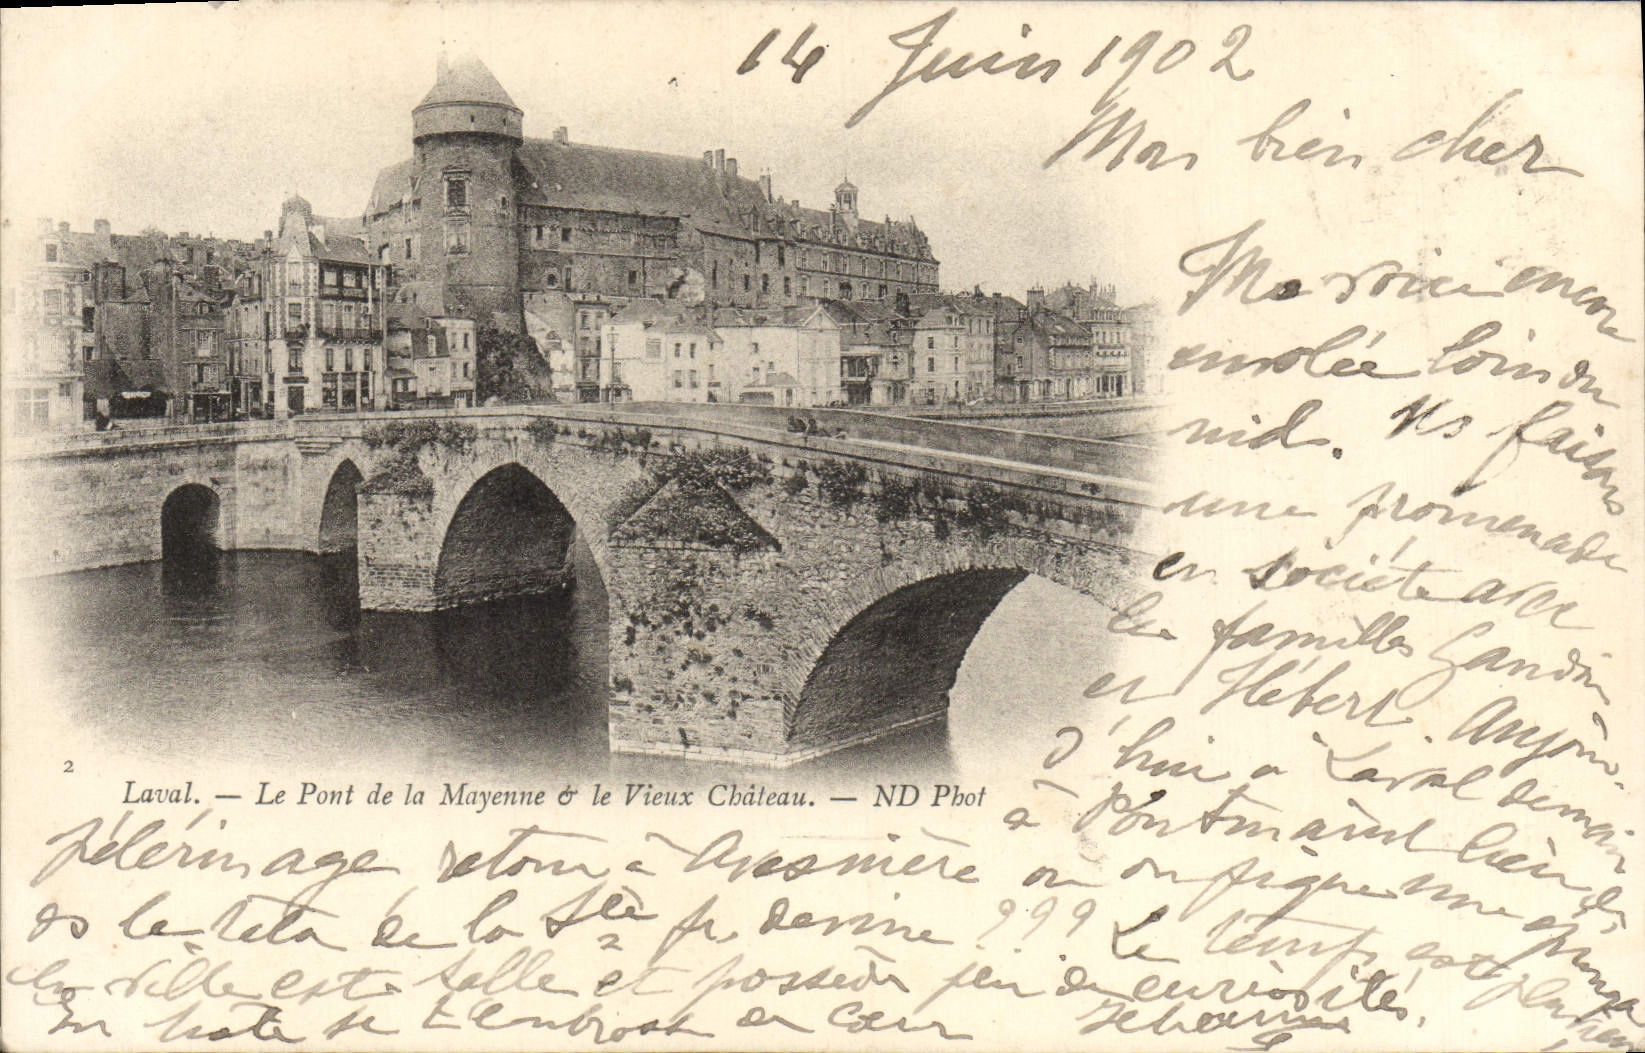 14 Juin 1902
Mon bien cher
Me voici encore
envolée loin du
nid. Ns faisons
une promenade
en société avec
les familles Gandin
et Hébert. Aujour-
d'hui à Laval demain
à Pontmain lieu de
pélérinage retour à Avesnière où on
de la de la Ste devine ??? Le temps est
la ville est et possède peu de curiosités.
En hâte je t'embrasse de cœur
2
Laval. — Le Pont de la Mayenne & le Vieux Château. — ND Phot